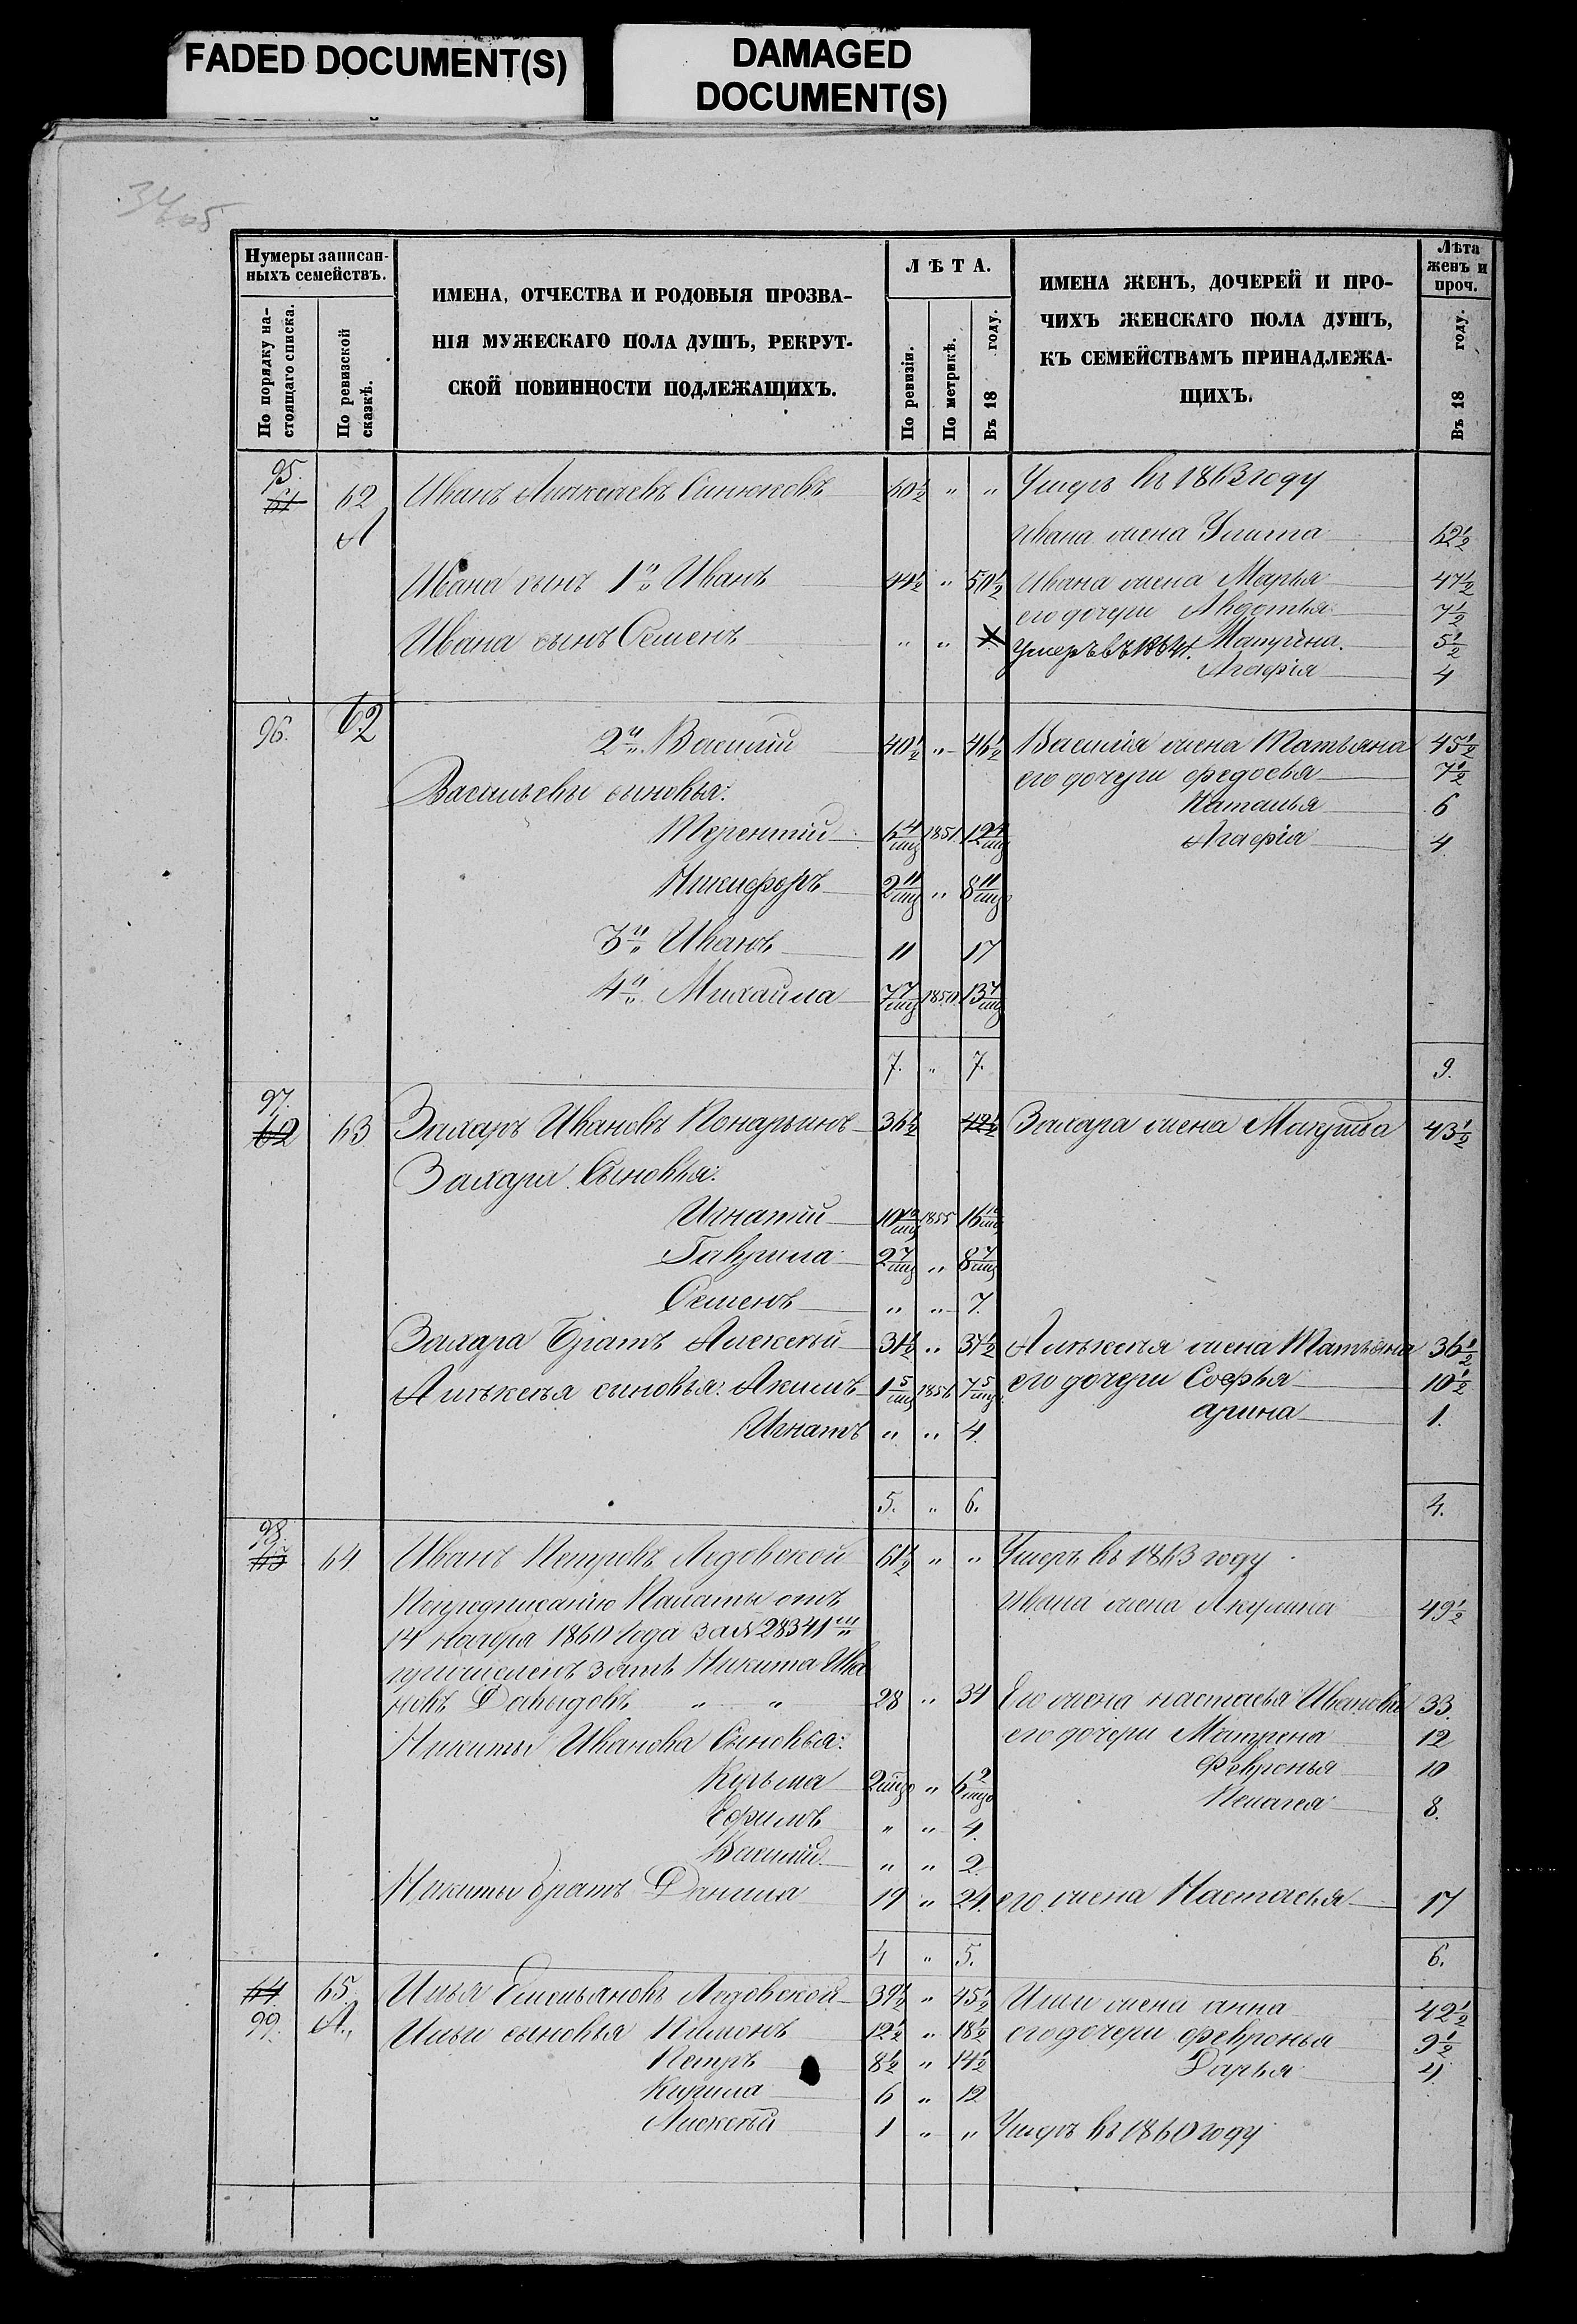 FADED DOCUMENT(S)
DAMAGED
DOCUMENT(S)
Нумеры записан-
ныхъ семействъ.
По порядку на-
стоящаго списка.
По ревизской
сказкѣ.
ИМЕНА, ОТЧЕСТВА И РОДОВЫЯ ПРОЗВА-
НІЯ МУЖЕСКАГО ПОЛА ДУШЪ, РЕКРУТ-
СКОЙ ПОВИННОСТИ ПОДЛЕЖАЩИХЪ.
ЛѢТА.
По ревизіи.
По метрикѣ.
Въ 18 году.
ИМЕНА ЖЕНЪ, ДОЧЕРЕЙ И ПРО-
ЧИХЪ ЖЕНСКАГО ПОЛА ДУШЪ,
КЪ СЕМЕЙСТВАМЪ ПРИНАДЛЕЖА-
ЩИХЪ.
Лѣта
женъ и
проч.
Въ 18 году.
95.
61 62 Иванъ Алексѣевъ 60½ " " Умеръ въ 1863 году
А Ивана жена Улита 62½
Ивана сынъ 1й Иванъ 44½ " 50½ Ивана жена Марья 47½
его дочери Авдотья 7½
Ивана сынъ Семенъ " " Умеръ въ 1864 г. Матрена. 5½
Агафія 4
96. 62 2й Василій 40½ " 46½ Василія жена Татьяна 45½
его дочери Федосья 7½
Васильевы сыновья: Наталья 6
Терентій 6 4/мц 1851 12 4/мц Агафія 4
Никифоръ 2 11/мц " 8 11/мц
3й Иванъ 11 17
4й Михаила 7 7/мц 1850 13 7/мц
7. " 7. 9.
97.
62 63 Захаръ Ивановъ Понарьинъ 36½ 42½ Захара жена Макрида 43½
Захара Сыновья:
Игнатій 10 10/мц 1855 16 10/мц
Гаврила 2 7/мц " 8 7/мц
Семенъ " " 7.
Захара Братъ Алексѣй 31½ " 37½ Алексѣя жена Татьяна 36½
Алексѣя сыновья: Акимъ 1 5/мц 1856 7 5/мц его дочери Софья 10½
Арина 1.
Игнатъ " " 4.
5. " 6. 4.
98.
63 64 Иванъ Петровъ Лодовской 61½ " " Умеръ въ 1863 году
По предписанію Палаты отъ Ивана жена Акулина 49½
14 ноября 1860 года за № 28341мъ
причисленъ зять Никита Ива
новъ Давыдовъ " " 28 " 34 Его жена Настасья Иванова 33.
Никиты Иванова Сыновья: его дочери Матрена 12
Кузьма 2 мцо " 6 2/мцо Февронья 10
Пелагея 8.
Ефимъ " " 4.
Василій " " 2.
Никиты братъ Данила 19 " 24. его жена Настасья 17
4 " 5. 6.
64 65 Илья Емельяновъ Лодовской 39½ " 45½ Ильи жена Анна 42½
99. А. Ильи сыновья Пименъ 12½ " 18½ его дочери Февронья 9½
Петръ 8½ " 14½ Дарья 4.
Кирила 6 " 12
Алексѣй 1 " " Умеръ въ 1860 году